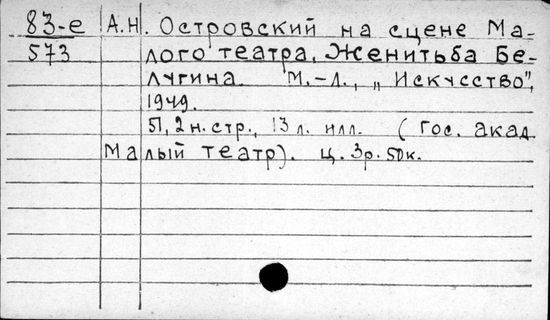 83-е А.Н. Островский на сцене Ма-
573 лого театра. Женитьба Бе-
лугина. М.-Л., „Искусство",
1949.
51, 2 н. стр., 13 л. илл. (Гос. акад
Малый театр). ц. 3р. 50к.